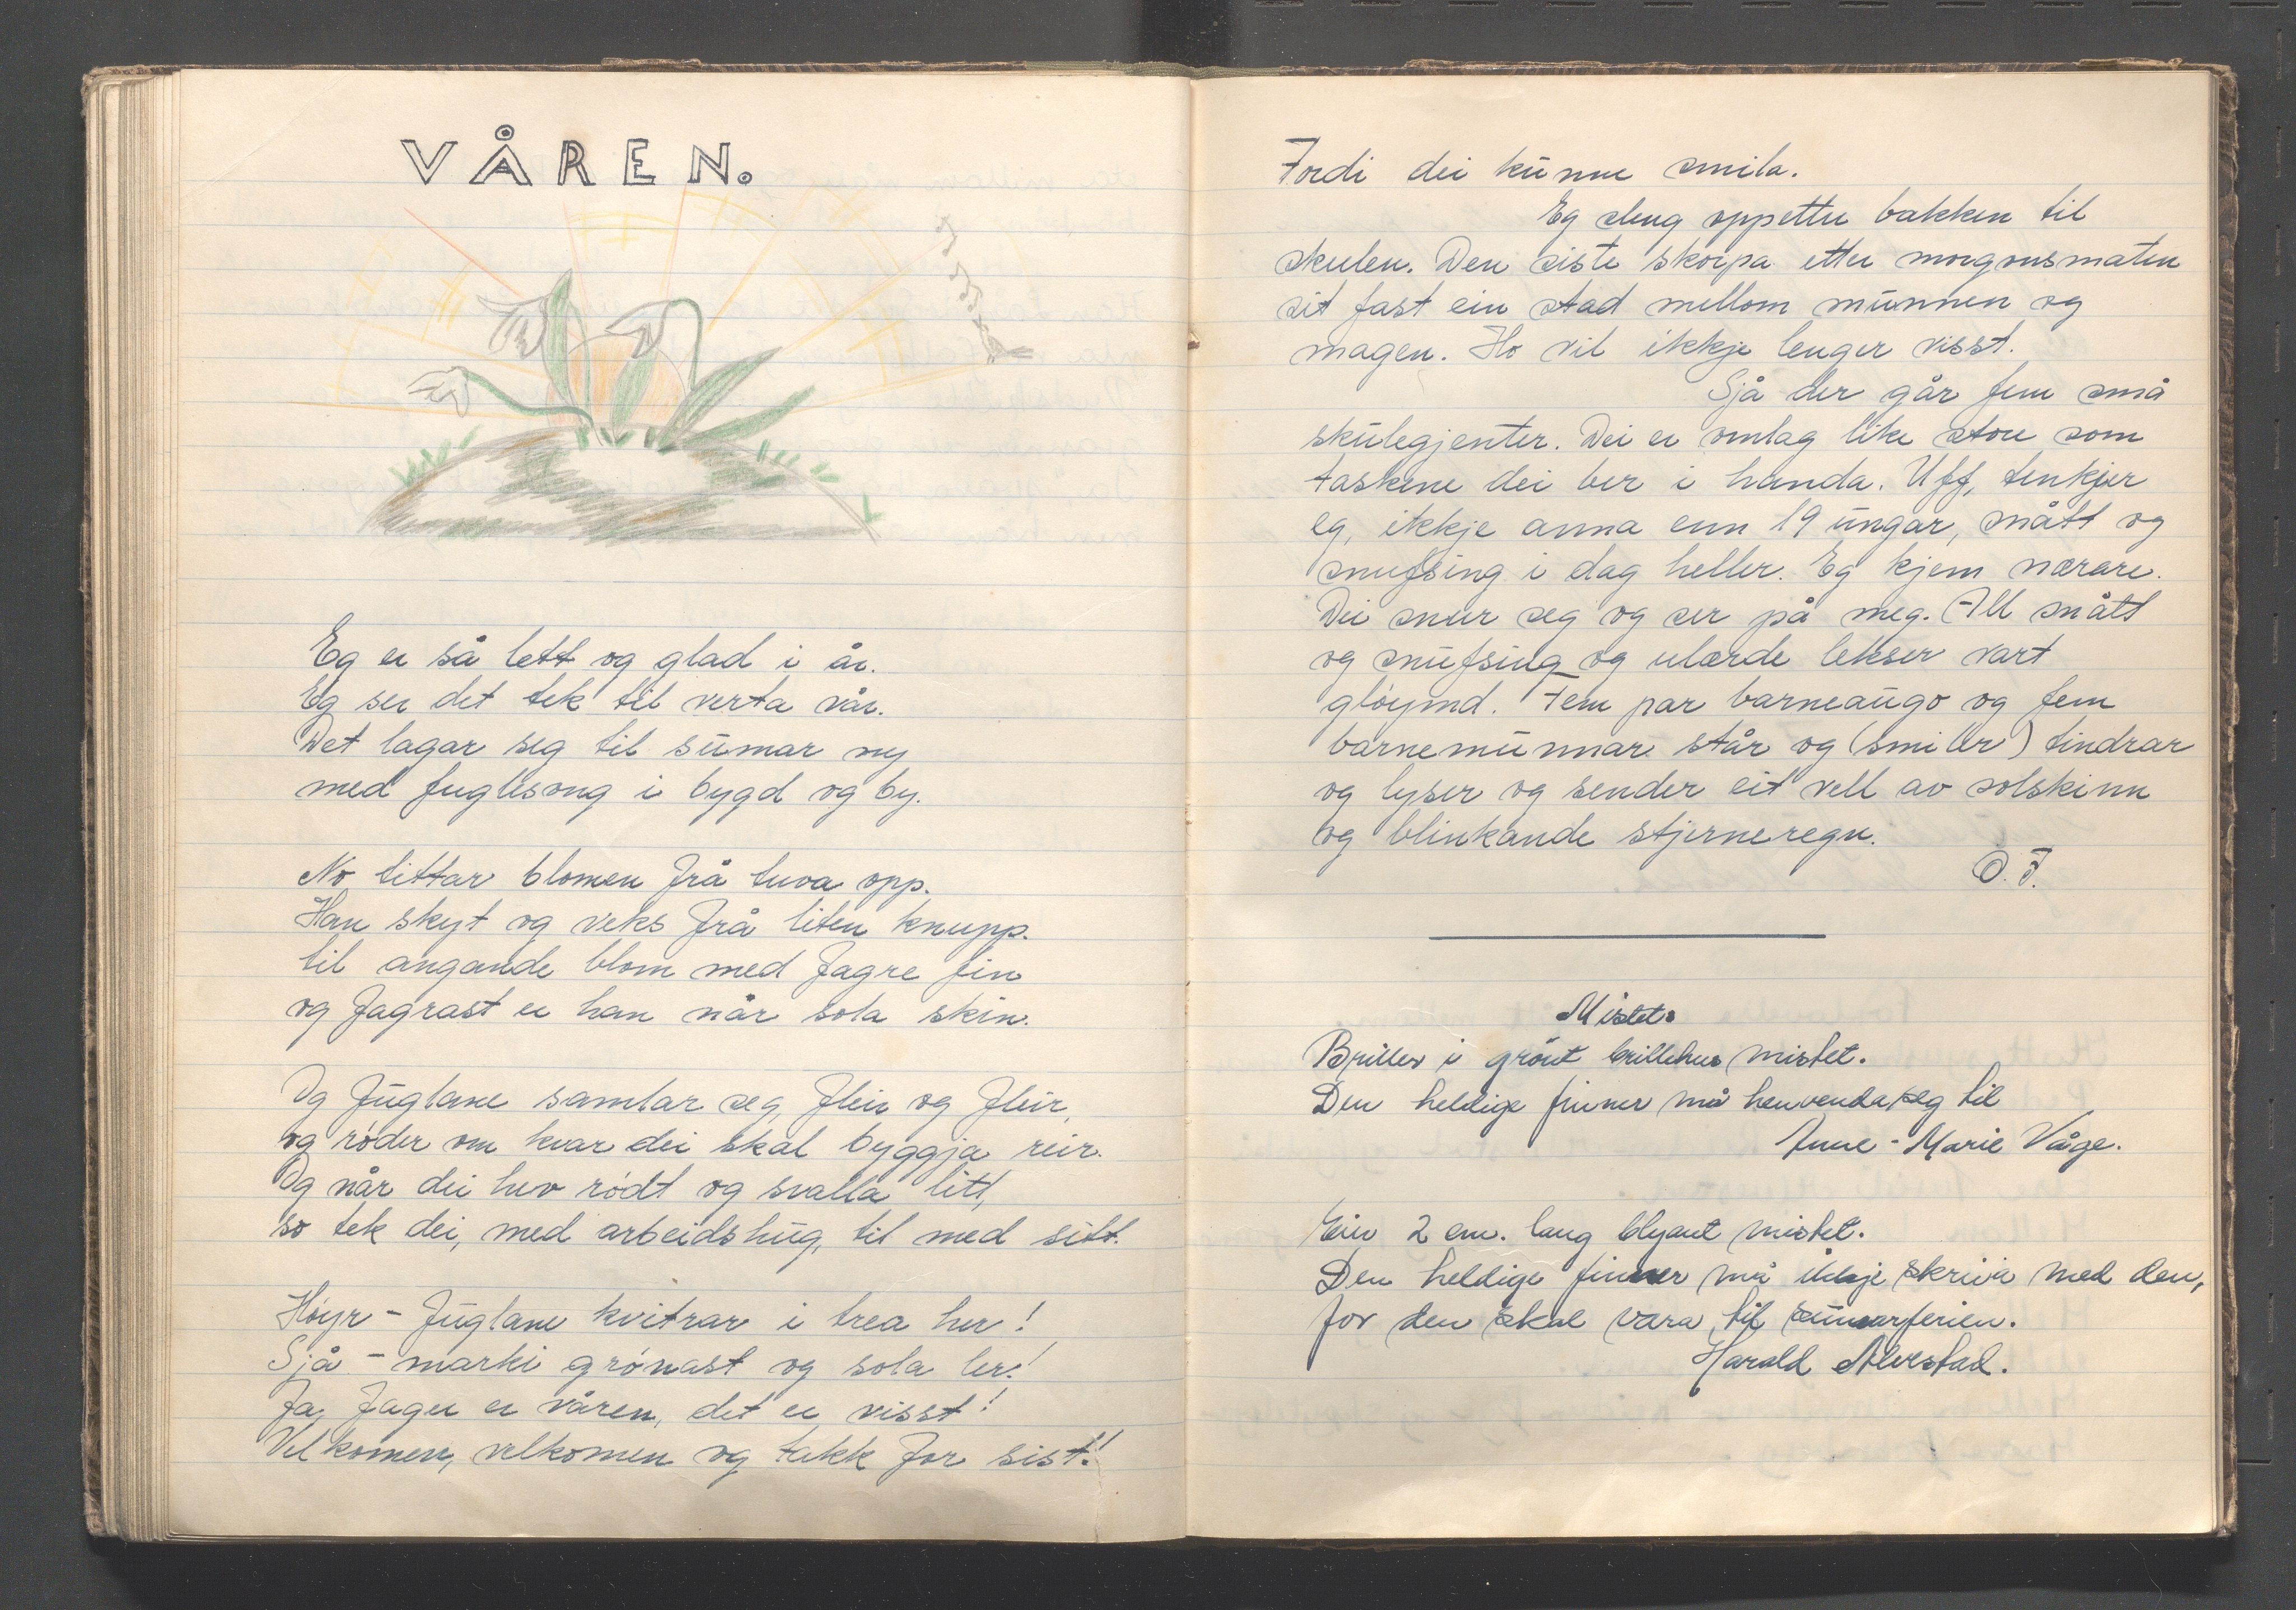 VÅREN.
Eg er så lett og glad i år.
Eg ser det tek til verta vår.
Det lagar seg til sumar ny
med fuglesong i bygd og by.
No tittar blomen frå tuva opp.
Han skyt og veks frå liten knupp.
til angande blom med fagre fin
og fagrast er han når sola skin.
Og fuglane samlar seg, fleir og fleir,
og røder om kvar dei skal byggja reir.
Og når dei hev rødt og svalla litt,
so tek dei, med arbeidshug, til med sitt.
Høyr - fuglane kvitrar i trea her!
Sjå - marki grønast og sola ler!
Ja, fager er våren, det er visst!
Velkomen, velkomen og takk for sist!
Fordi dei kunne smila.
Eg sleng oppetter bakken til
skulen. Den siste skorpa etter morgonsmaten
sit fast ein stad mellom munnen og
magen. Ho vil ikkje lenger visst.
Sjå der går fem små
skulegjenter. Dei er omlag like store som
taskene dei ber i handa. Uff, tenkjer
eg, ikkje anna enn 19 ungar, snått og
snufsing i dag heller. Eg kjem nærare.
Dei snur seg og ser på meg. All snått
og snufsing og ulærde lekser vart
gløymd. Fem par barneaugo og fem
barnemunnar står og (smiler) tindrar
og lyser og sender eit vell av solskinn
og blinkande stjerneregn.
O. F.
Mistet.
Briller i grønt brillehus mistet.
Den heldige finner må henvenda seg til
Anne-Marie Våge.
Ein 2 cm. lang blyant mistet.
Den heldige finner må ikkje skriva med den,
for den skal vara til sumarferien.
Harald Alvestad.